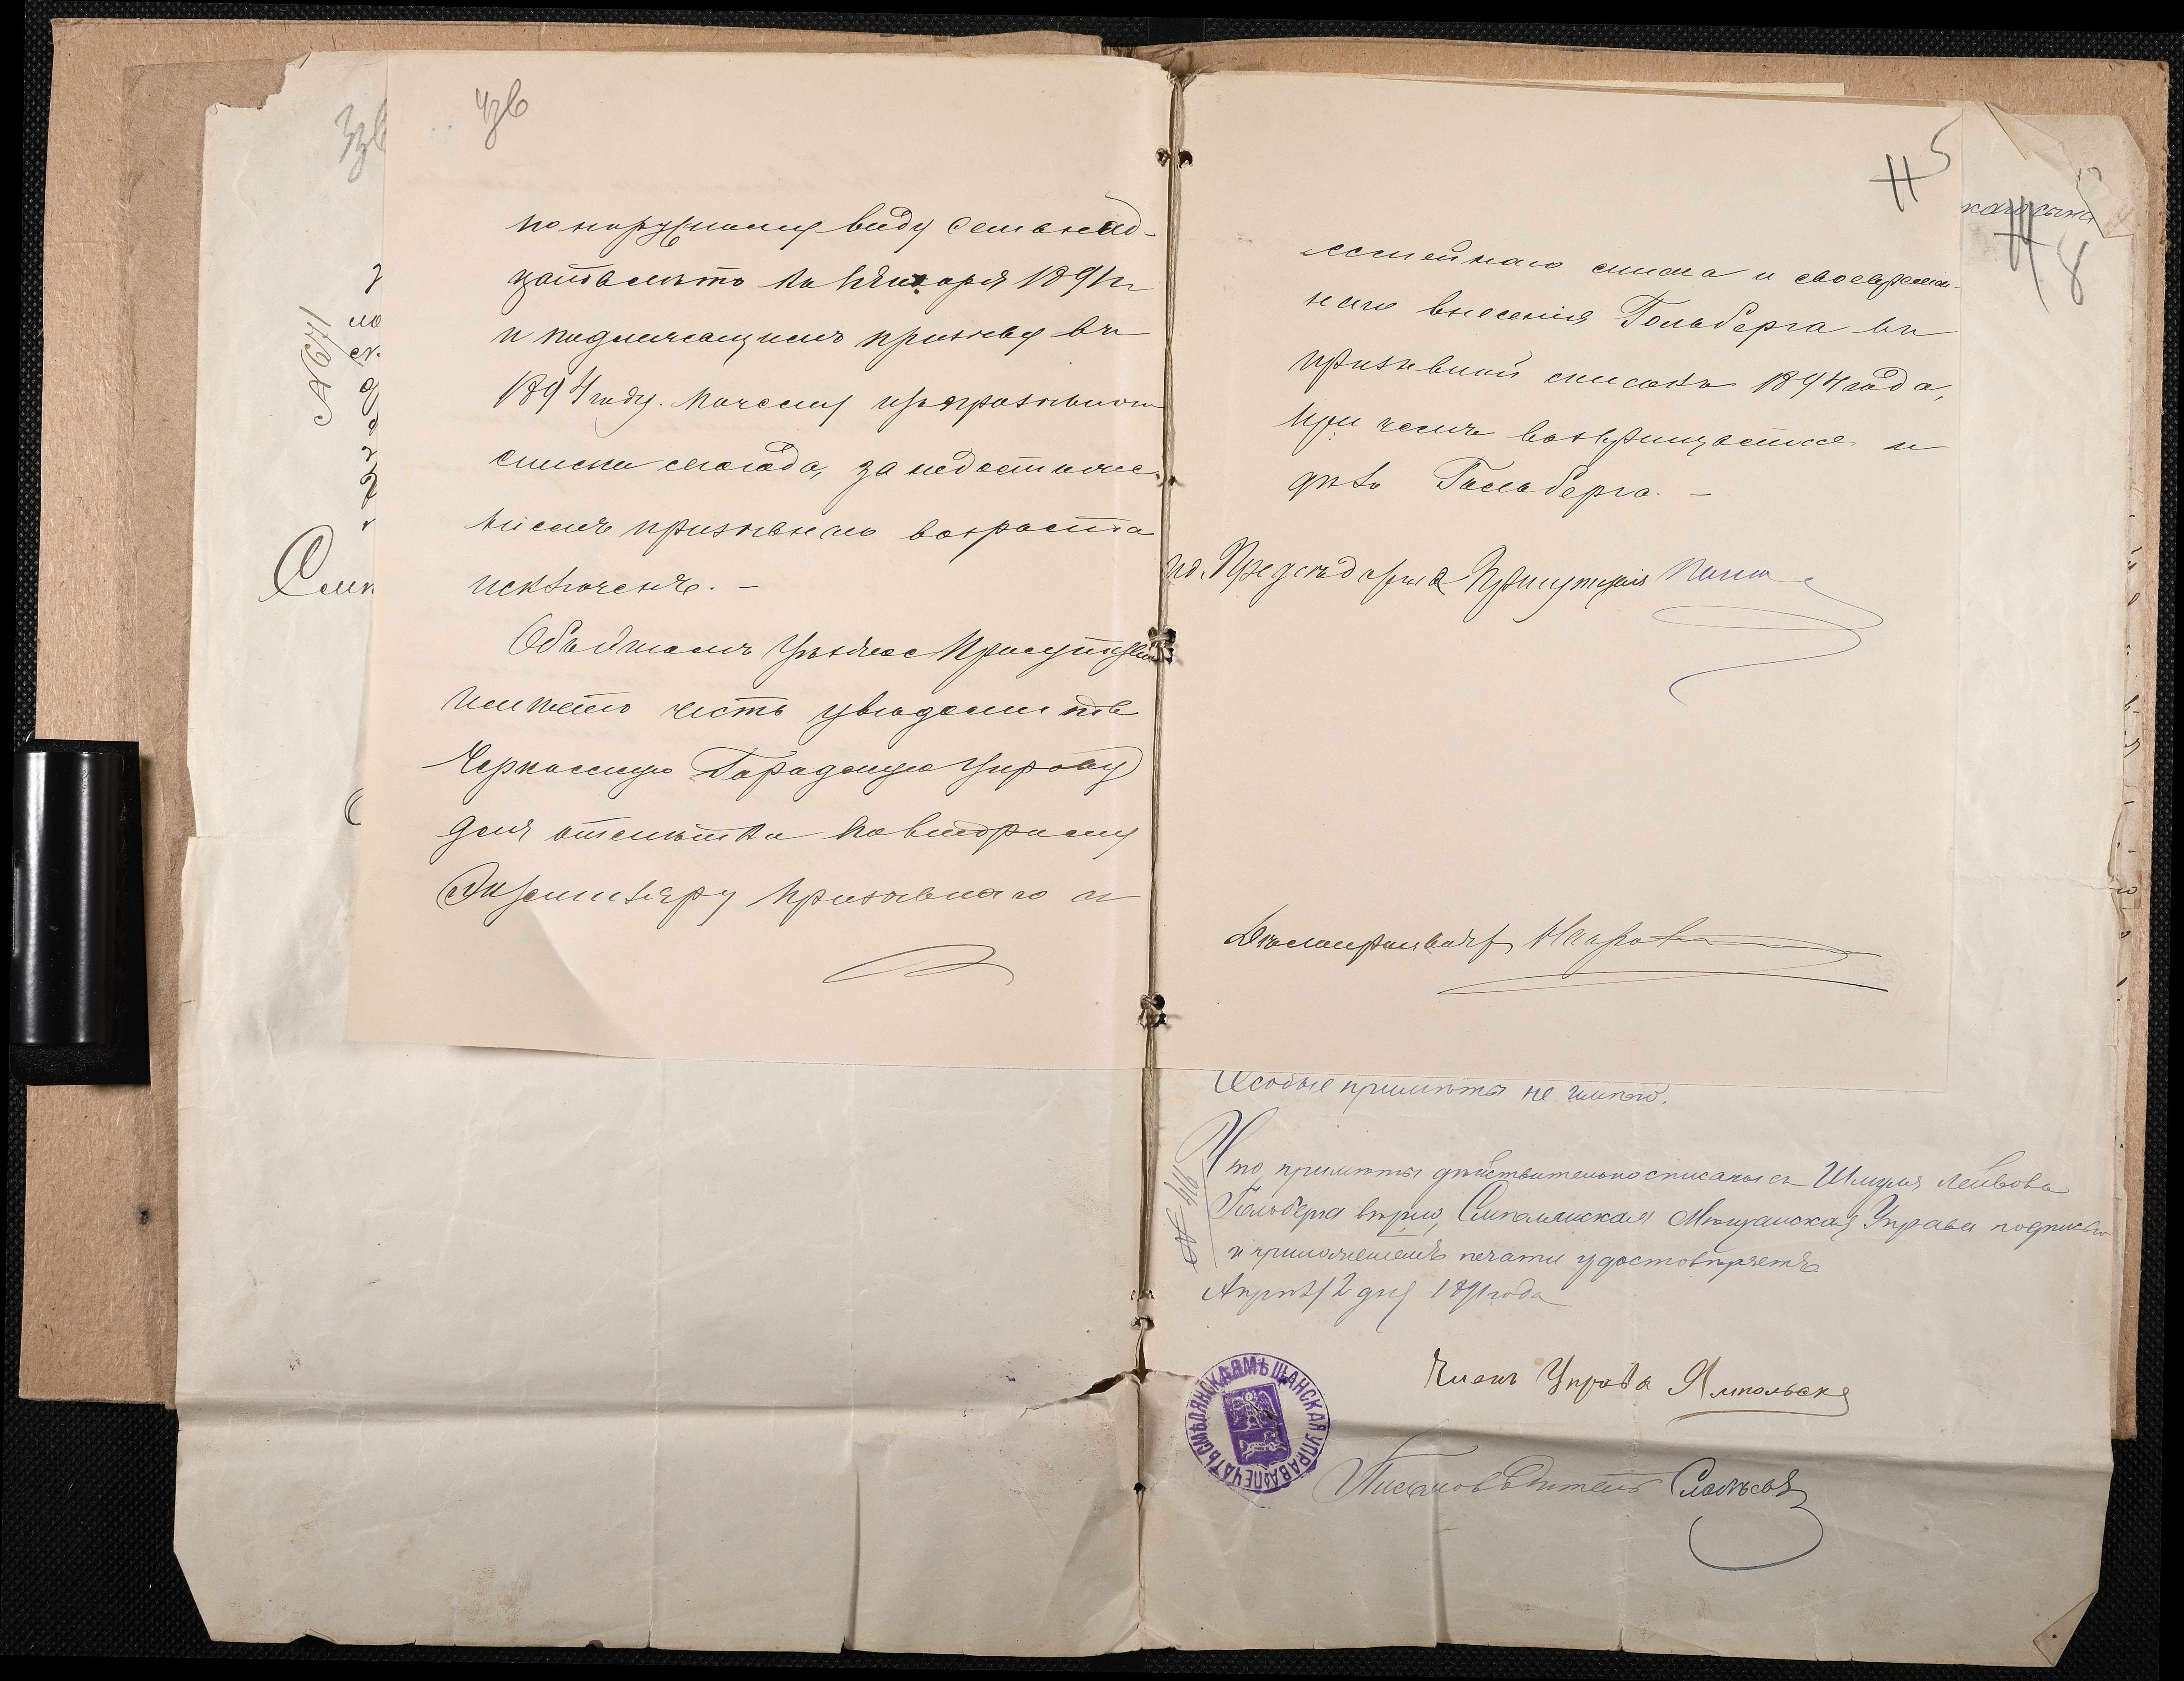 по наружному виду семьнад-
цать лѣтъ къ 1 Января 1891 г
и подлежащимъ призыву въ
1894 году. Почему изъ призывного
списка сего года, за недостиже-
ніемъ призывнаго возраста
исключенъ. —
Объ этомъ Уѣздное Присутствіе
имѣетъ честь увѣдомить
Черкасскую Городскую Управу
для отмѣтки по второму
Экземпляру призывнаго и
5
семейнаго списка и своевремен-
наго внесенія Гольберга въ
призывной списокъ 1894 года,
при чемъ возвращается и
дѣло Гольберга. —
И. д. Предсѣдателя Присутствія
Дѣлопроизводитель
8
№ 671
Особые примѣты не имѣетъ.
Что примѣты дѣйствительно списаны съ Шмуля Лейбова
Гольберга вѣрно, Смѣлянская Мѣщанская Управа подписью
и приложеніемъ печати удостовѣряетъ
Апрѣля 12 дня 1891 года
Членъ Управы Ямпольскій
ПЕЧАТЬ СМѢЛЯНСКАЯ МѢЩАНСКАЯ УПРАВА
Письмоводитель